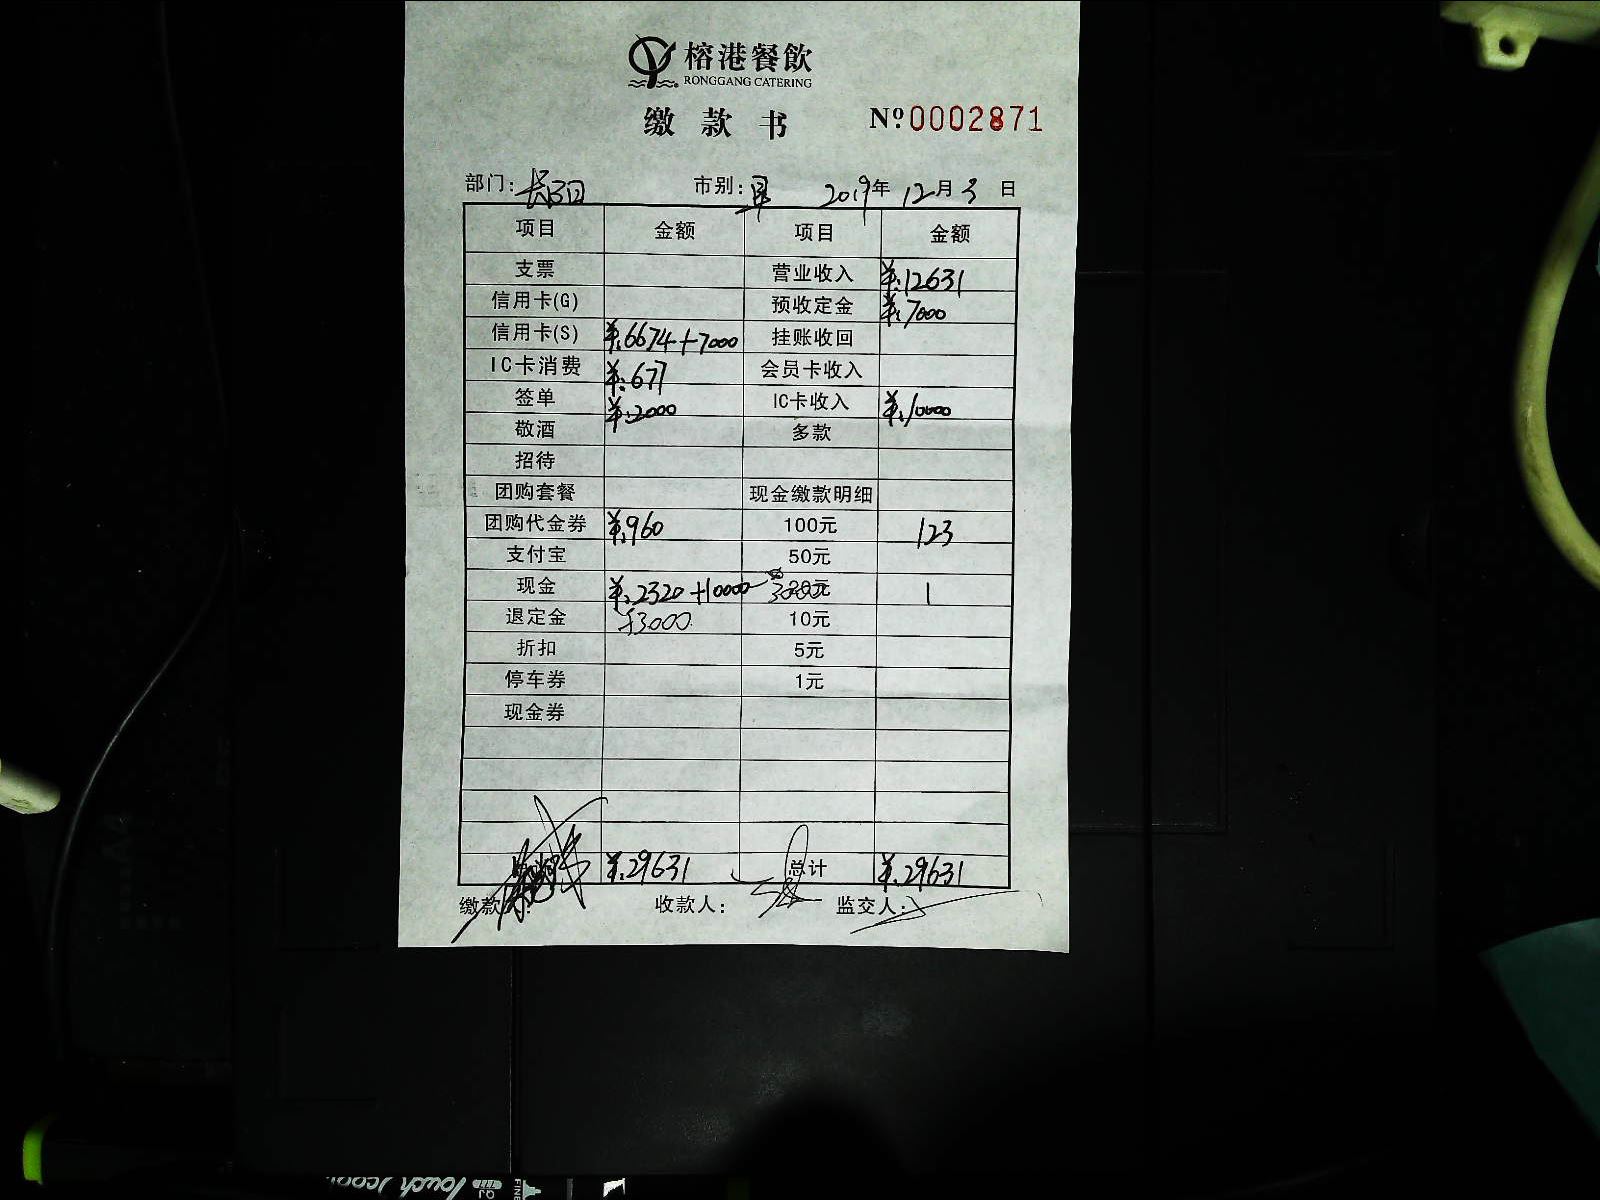 榕港餐飲
RONGGANG CATERING
缴款书 №0002871
部门: 市别: 2019年 12月 3 日
项目 金额 项目 金额
支票 营业收入 ¥:12631
信用卡(G) 预收定金 ¥:7000
信用卡(S) ¥:6674+7000 挂账收回
IC卡消费 ¥:677 会员卡收入
签单 ¥:2000 IC卡收入 ¥:10000
敬酒 多款
招待
团购套餐 现金缴款明细
团购代金券 ¥:960 100元 123
支付宝 50元
现金 ¥:2320+10000 20元 1
退定金 3000 10元
折扣 5元
停车券 1元
现金券
¥:29631 总计 ¥:29631
缴款人: 收款人: 监交人: